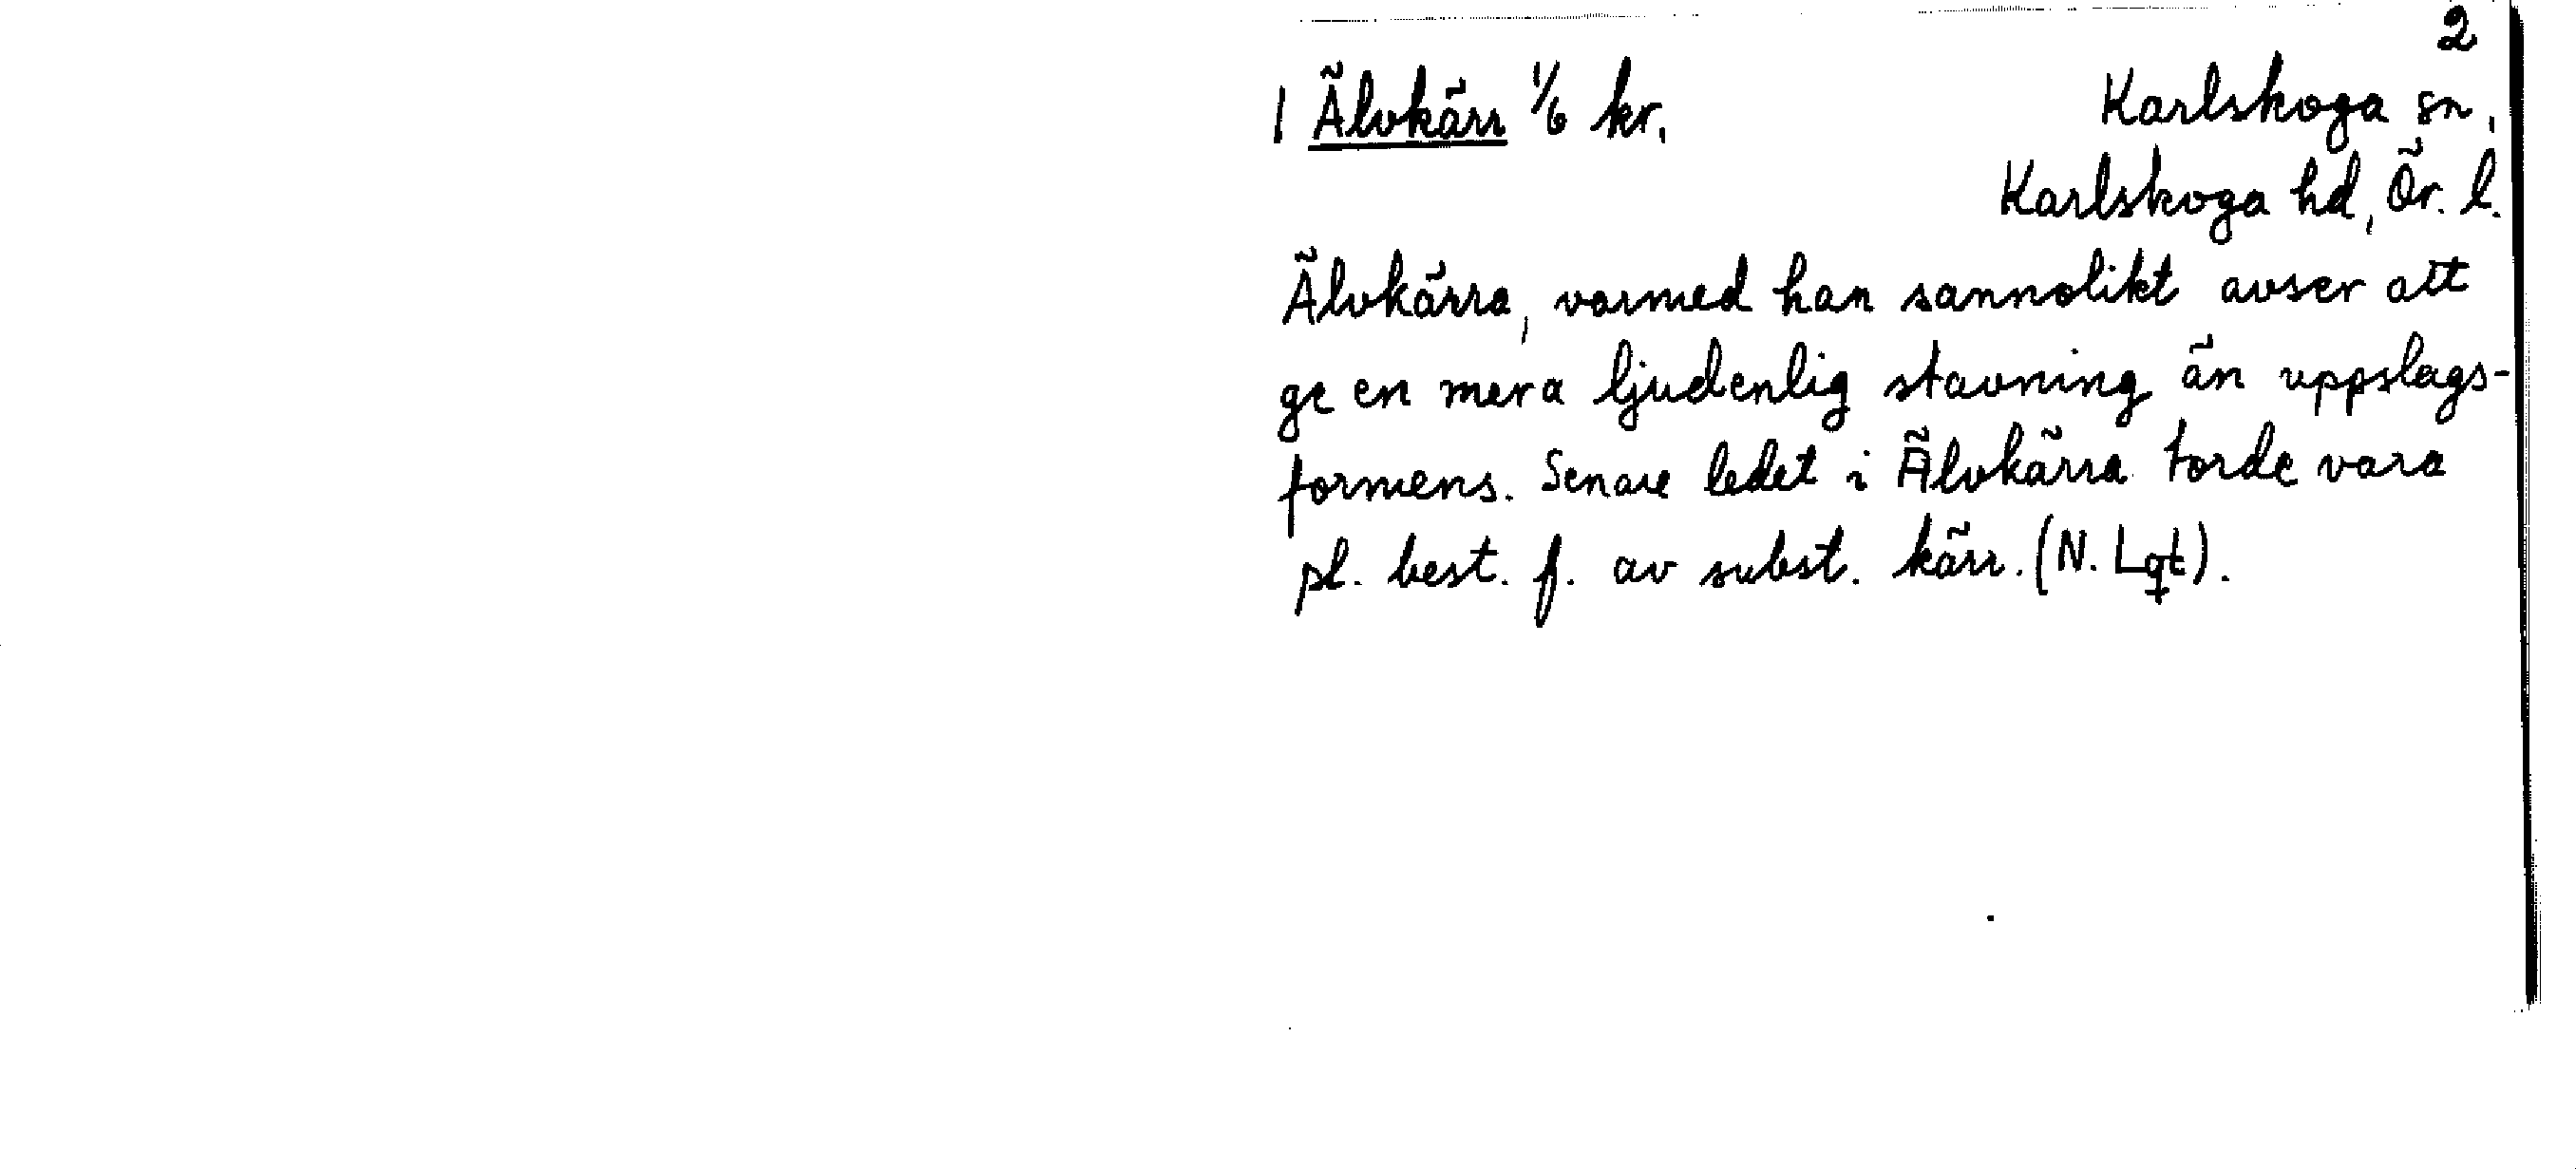 2
1 Älvkärr 1/6 kr.
Karlskoga sn,
Karlskoga hd, Ör. l.
Älvkärra, varmed han sannolikt avser att
ge en mera ljudenlig stavning än uppslags-
formens. Senare ledet i Älvkärra torde vara
pl. best. f. av subst. kärr. (N. Lqt).